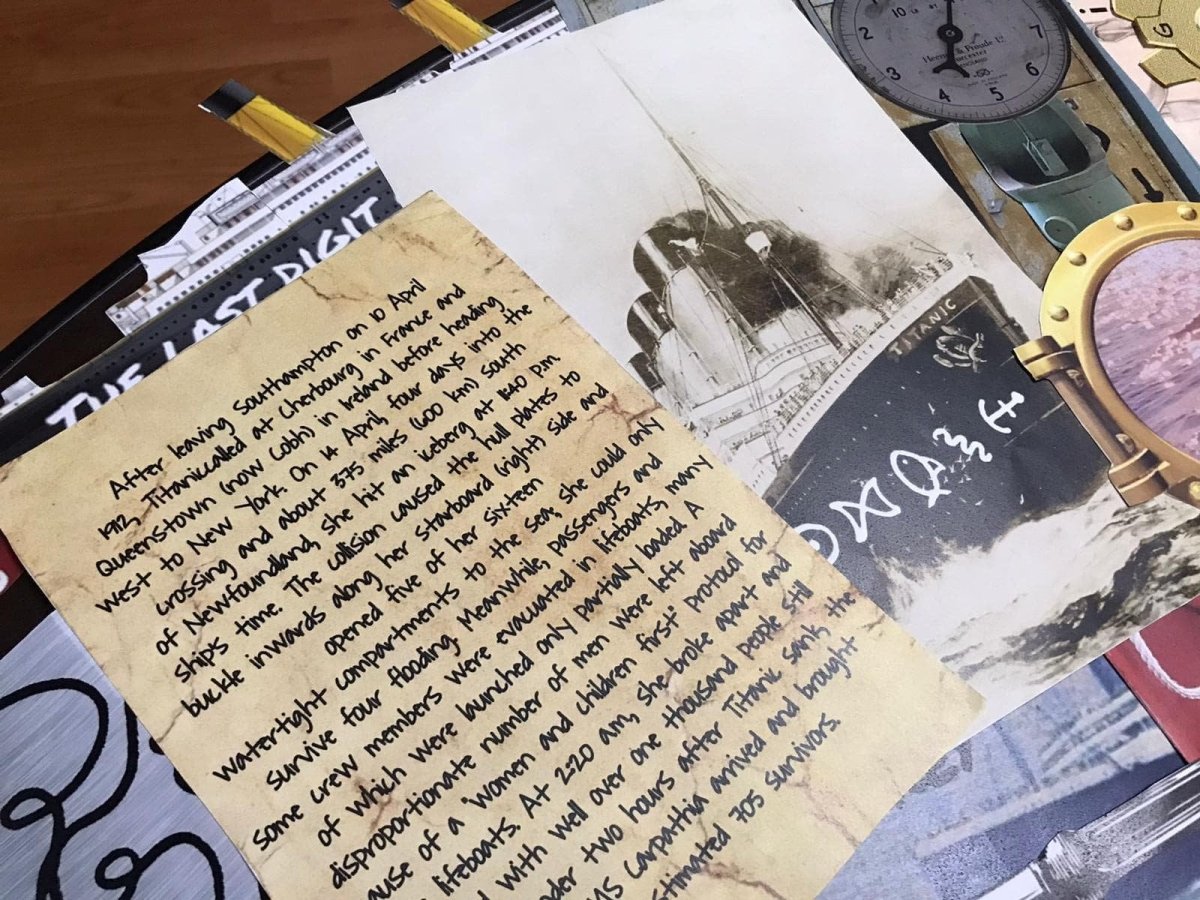 THE LAST DIGIT
After leaving Southampton on 10 April
1912, Titanic called at Cherbourg in France and
Queenstown (now Cobh) in Ireland before heading
west to New York. On 14 April, four days into the
crossing and about 375 miles (600 km) south
of Newfoundland, she hit an iceberg at 11:40 p.m.
ships time. The collision caused the hull plates to
buckle inwards along her starboard (right) side and
opened five of her sixteen
watertight compartments to the sea; she could only
survive four flooding. Meanwhile, passengers and
some crew members were evacuated in lifeboats, many
of which were launched only partially loaded. A
disproportionate number of men were left aboard
of a "women and children first" protocol for
lifeboats. At 2:20 am, she broke apart and
with well over one thousand people still
two hours after Titanic sank, the
Carpathia arrived and brought
705 survivors.
TITANIC
10
2
3
4
5
6
7
G